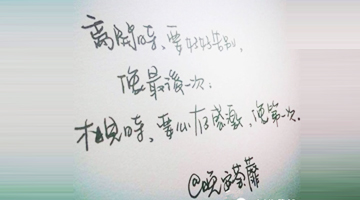 離開時、要好好告別,
像最後一次;
相見時、要心存感激,像第一次.
@晚安荼蘼